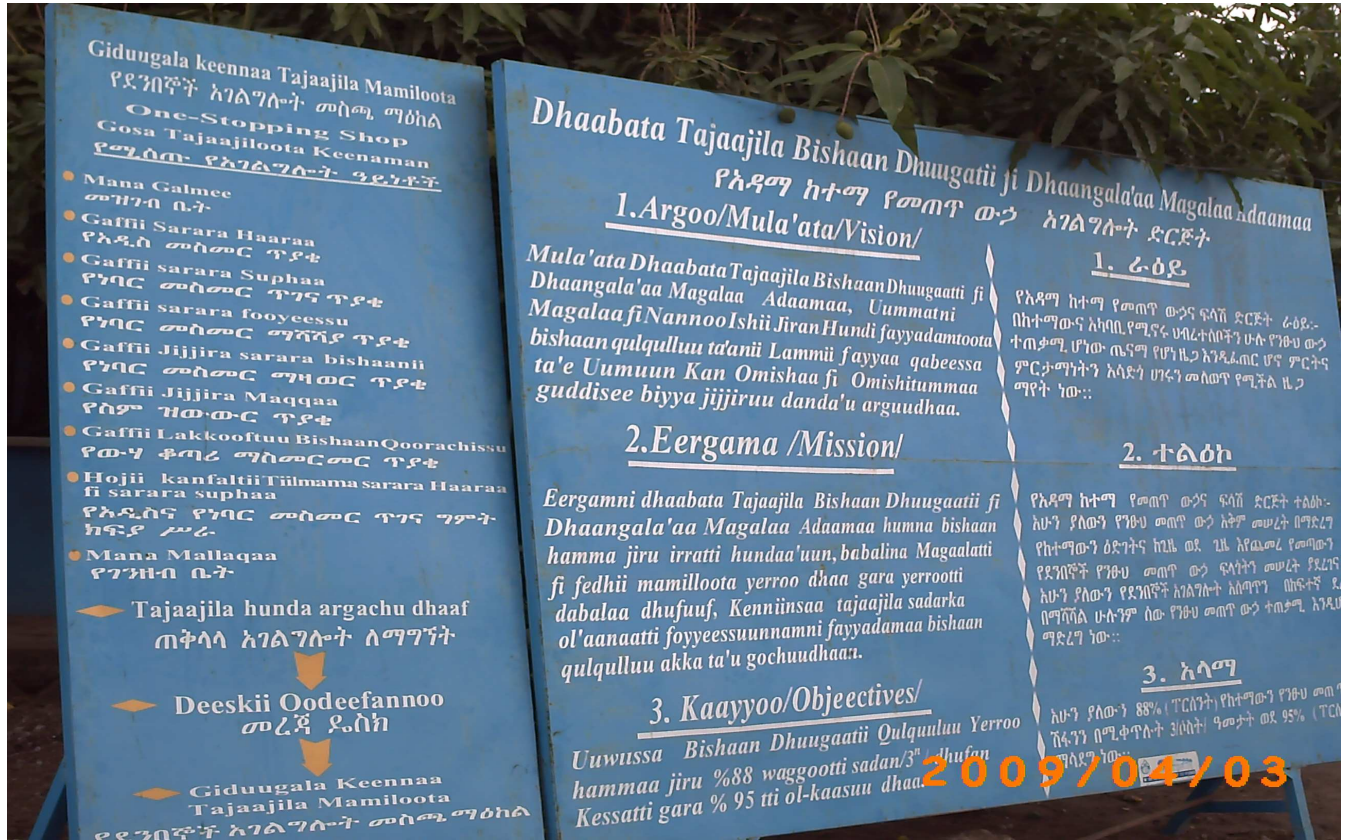 Giduugala keennaa Tajaajila Mamiloota
የደንበኞች አገልግሎት መስጫ ማዕከል
One-Stopping Shop
Gosa Tajaajiloota Keenaman
የሚሰጡ የአገልግሎት ዓይነቶች
Mana Galmee
መዝገብ ቤት
Gaffii Sarara Haaraa
የአዲስ መስመር ጥያቄ
Gaffii sarara Suphaa
የነባር መስመር ጥገና ጥያቄ
Gaffii sarara fooyeessu
የነባር መስመር ማሻሻያ ጥያቄ
Gaffii Jijjira sarara bishaanii
የነባር መስመር ማዛወር ጥያቄ
Gaffii Jijjira Maqqaa
የስም ዝውውር ጥያቄ
Gaffii Lakkooftuu Bishaan Qoorachissu
የውሃ ቆጣሪ ማስመርመር ጥያቄ
Hojii kanfaltii Tiilmama sarara Haaraa
fi sarara suphaa
የአዲስና የነባር መስመር ጥገና ግምት
ክፍያ ሥራ
Mana Mallaqaa
የገንዘብ ቤት
Tajaajila hunda argachu dhaaf
ጠቅላላ አገልግሎት ለማግኘት
Deeskii Oodeefannoo
መረጃ ዴስክ
Giduugala Keennaa
Tajaajila Mamiloota
የደንበኞች አገልግሎት መስጫ ማዕከል
Dhaabata Tajaajila Bishaan Dhuugatii fi Dhaangala'aa Magalaa Adaamaa
የአዳማ ከተማ የመጠጥ ውኃ አገልግሎት ድርጅት
1.Argoo/Mula'ata/Vision/
Mula'ata Dhaabata Tajaajila Bishaan Dhuugaatti fi
Dhaangala'aa Magalaa Adaamaa, Uummatni
Magalaa fi Nannoo Ishii Jiran Hundi fayyadamtoota
bishaan qulqulluu ta'anii Lammii fayyaa qabeessa
ta'e Uumuun Kan Omishaa fi Omishitummaa
guddisee biyya jijjiruu danda'u arguudhaa.
2.Eergama /Mission/
Eergamni dhaabata Tajaajila Bishaan Dhuugaatii fi
Dhaangala'aa Magalaa Adaamaa humna bishaan
hamma jiru irratti hundaa'uun, babalina Magaalatti
fi fedhii mamilloota yerroo dhaa gara yerrootti
dabalaa dhufuuf, Kenniinsaa tajaajila sadarka
ol'aanaatti foyyeessuunnamni fayyadamaa bishaan
qulqulluu akka ta'u gochuudhaan.
3. Kaayyoo/Objeectives/
Uuwussa Bishaan Dhuugaatii Qulquuluu Yerroo
hammaa jiru %88 waggootti sadan/3ⁿ/ dhufan
Kessatti gara % 95 tti ol-kaasuu dhaa.
1. ራዕይ
የአዳማ ከተማ የመጠጥ ውኃና ፍሳሽ ድርጅት ራዕይ:-
በከተማውና አካባቢ የሚኖሩ ህብረተሰቦችን ሁሉ የንፁህ ውኃ
ተጠቃሚ ሆነው ጤናማ የሆነ ዜጋ እንዲፈጠር ሆኖ ምርትና
ምርታማነትን አሳድጎ ሀገሩን መለወጥ የሚችል ዜጋ
ማየት ነው::
2. ተልዕኮ
የአዳማ ከተማ የመጠጥ ውኃና ፍሳሽ ድርጅት ተልዕኮ:-
አሁን ያለውን የንፁህ መጠጥ ውኃ አቅም መሠረት በማድረግ
የከተማውን ዕድገትና ከጊዜ ወደ ጊዜ እየጨመረ የመጣውን
የደንበኞች የንፁህ መጠጥ ውኃ ፍላጎትን መሠረት ያደረገና
አሁን ያለውን የደንበኞች አገልግሎት አሰጣጥን በከፍተኛ
በማሻሻል ሁሉንም ሰው የንፁህ መጠጥ ውኃ ተጠቃሚ እንዲሆን
ማድረግ ነው::
3. አላማ
አሁን ያለውን 88% (ፐርሰንት) የከተማውን የንፁህ መጠጥ
ሽፋንን በሚቀጥሉት 3/ሶስት/ ዓመታት ወደ 95%
ማሳደግ ነው::
2009/04/03